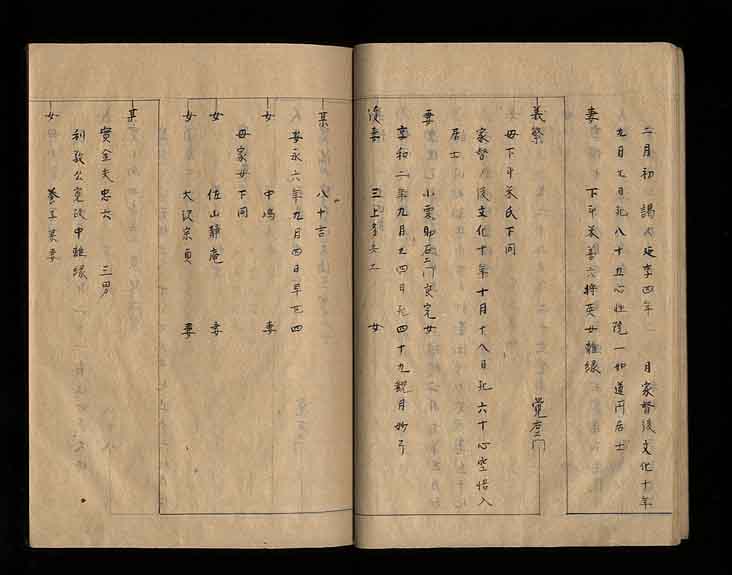 二月初謁 延享四年 月家督後文化十年
九月七日死八十五心性院一如道円居士
妻 下平 女離縁
義繁 覚左エ門
母下平米氏下同
家督後文化十年十月十八日死六十心空悟入
居士
妻 小栗 門 女
享和二年九月 四日死四十九観月妙
後妻 三上 女
某 八十吉
安永六年九月四日早世四
女 中嶋 妻
母家女下同
女 佐山静庵 妻
女 大沢宗真 妻
某
實金夫忠六 三男
利政公寛政中離縁
女 養子某妻